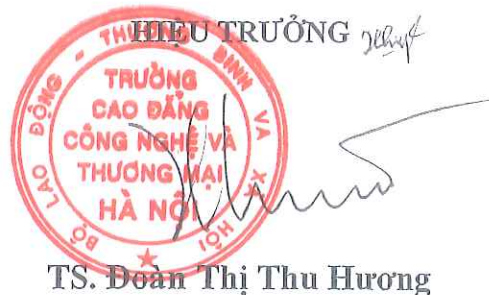 HIỆU TRƯỞNG
BỘ LAO ĐỘNG - THƯƠNG BINH VÀ XÃ HỘI
TRƯỜNG
CAO ĐẲNG
CÔNG NGHỆ VÀ
THƯƠNG MẠI
HÀ NỘI
TS. Đoàn Thị Thu Hương